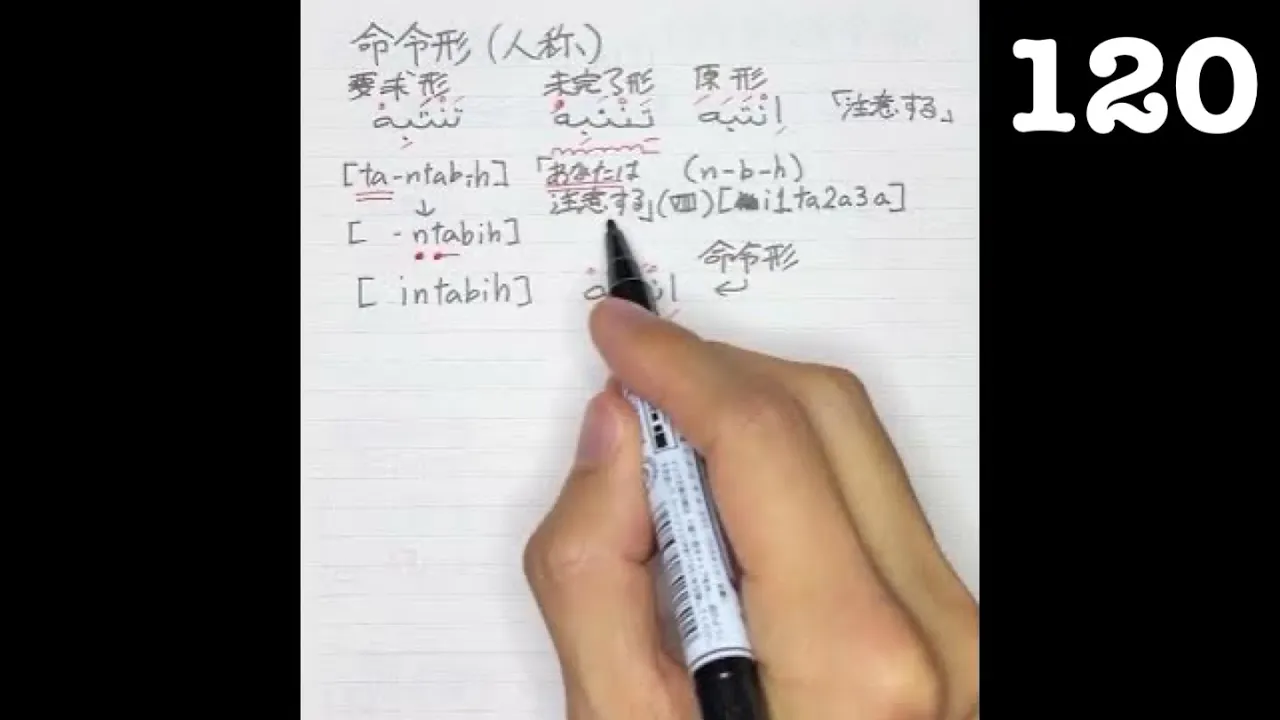 命令形(人称、) 120
要求形 未完了形 原形
تَنْتَبِهْ تَنْتَبِهُ اِنْتَبَهَ 「注意する」
[ta-ntabih] 「あなたは (n-b-h)
注意する」(VIII)[i1ta2a3a]
↓
[ -ntabih] 命令形
[ intabih]